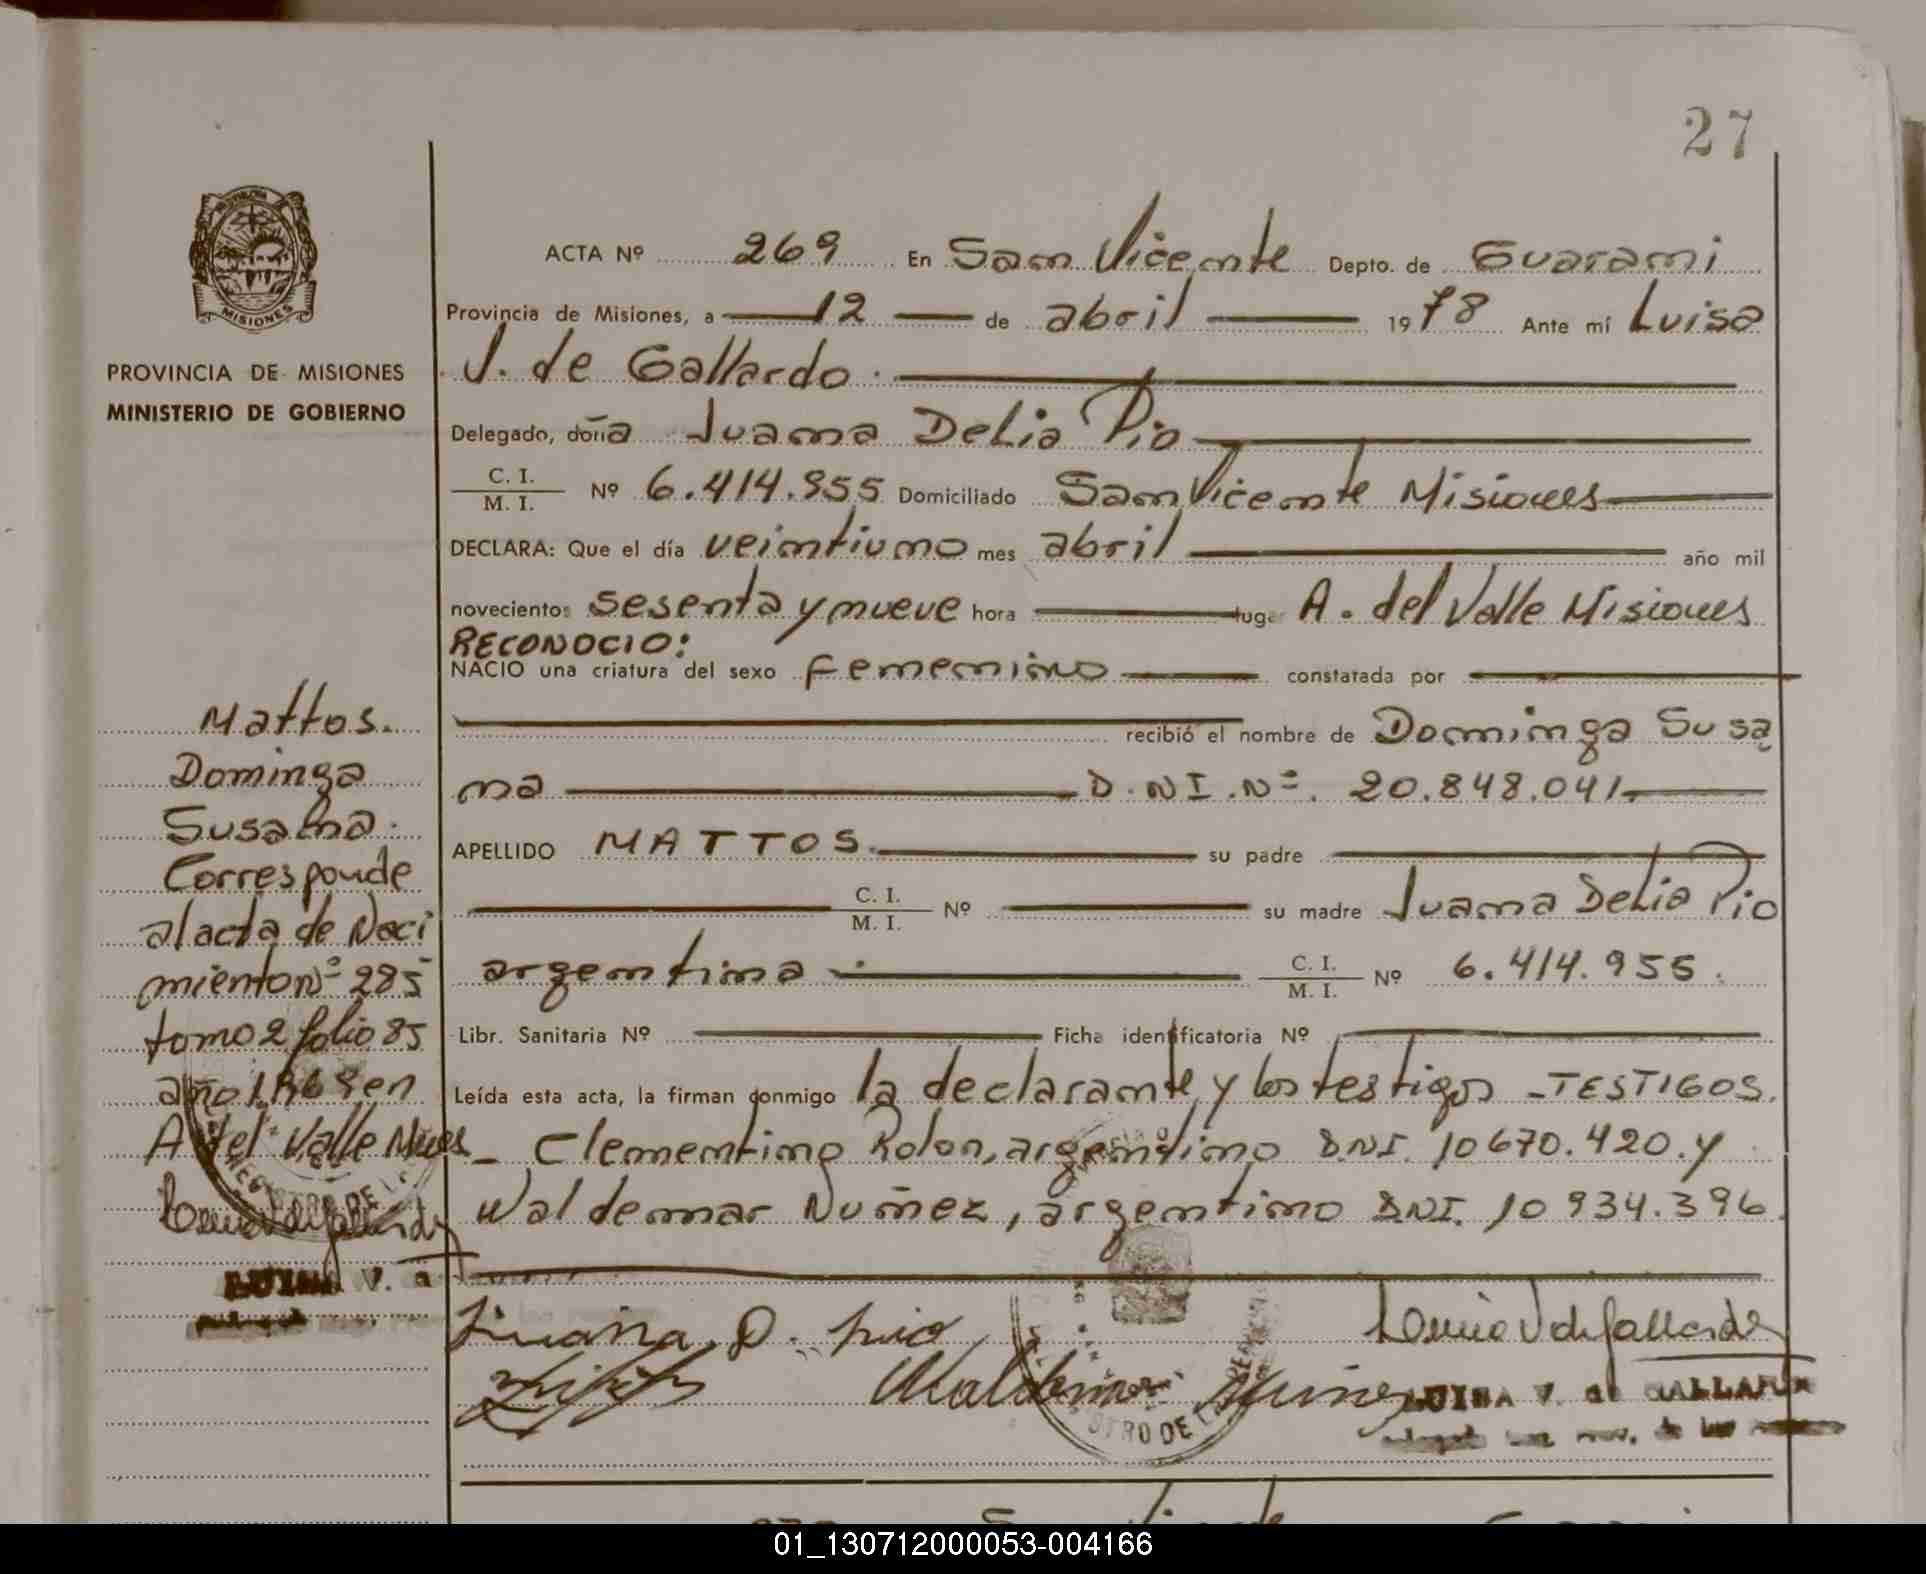 27
MISIONES
PROVINCIA DE MISIONES
MINISTERIO DE GOBIERNO
ACTA Nº 269 En San Vicente Depto. de Guarani
Provincia de Misiones, a 12 de abril 1978 Ante mí Luisa
V. de Gallardo.
Delegado, doña Juana Delia Pio
C. I. / M. I. Nº 6.414.955 Domiciliado San Vicente Misiones
DECLARA: Que el día veintiuno mes abril año mil
novecientos sesenta y nueve hora lugar A. del Valle Misiones
RECONOCIO:
NACIO una criatura del sexo femenino constatada por
recibió el nombre de Dominga Susa
na D.NI.Nº. 20.848.041.
APELLIDO MATTOS. su padre
C. I. / M. I. Nº su madre Juana Delia Pio
argentina C. I. / M. I. Nº 6.414.955.
Libr. Sanitaria Nº Ficha identificatoria Nº
Leída esta acta, la firman conmigo la declarante y los testigos - TESTIGOS.
- Clementino Rolon, argentino D.N.I. 10670.420. y
Waldemar Nuñez, argentino D.N.I. 10 934.396
Juana D. Pio
Waldemar Nuñez
LUISA V. de GALLARDO
Mattos.
Dominga
Susana.
Corresponde
al acta de Naci
miento Nº 285
tomo 2 folio 85
año 1969 en
A. del Valle Mnes
LUISA V. d
01_130712000053-004166